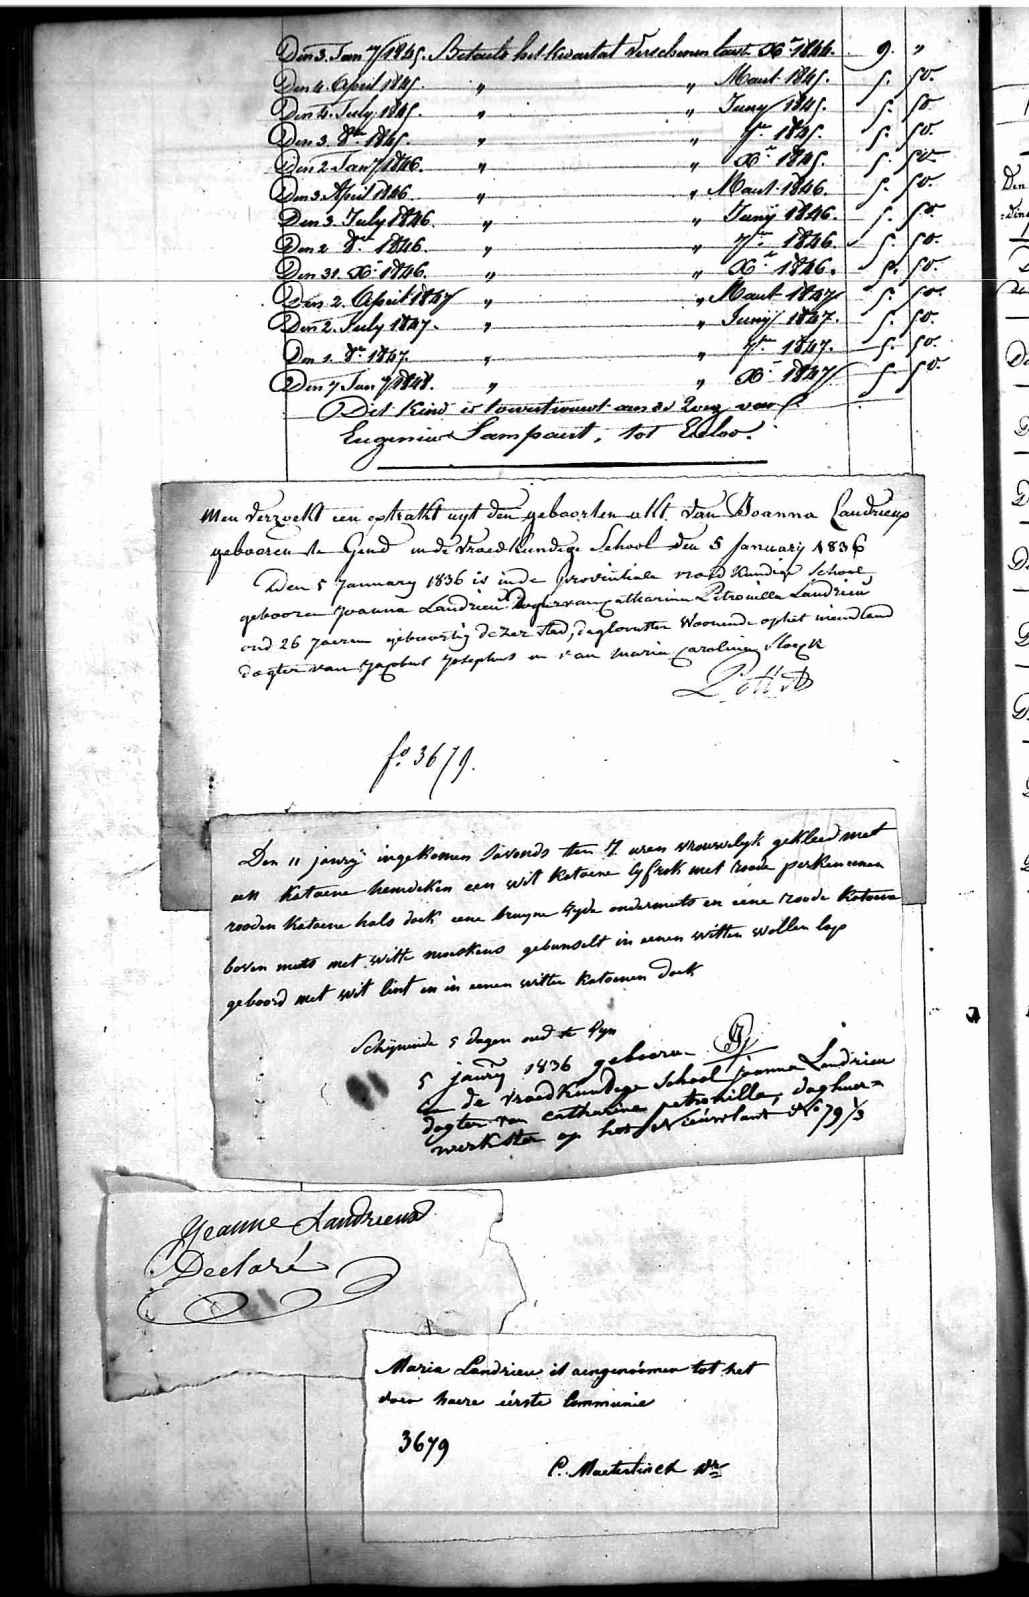 Den 3. Jan ry 1845. Betaelt het kwartal verschenen laut. Xr. 1844. 9. "
Den 4. April 1845. " " Maart 1845. 5. 50.
Den 4. July 1845. " " Juny 1845. 5. 50
Den 3. 8re 1845. " " 7re 1845. 5. 50.
Den 2 Jan ry 1846. " " Xr. 1845. 5. 50.
Den 3 April 1846. " " Maart 1846. 5. 50.
Den 3. July 1846. " " Juny 1846. 5. 50.
Den 2 8re 1846. " " 7re 1846. 5. 50.
Den 31. Xr. 1846. " " Xr 1846. 5. 50.
Den 2. April 1847 " " Maart 1847 5. 50.
Den 2. July 1847. " " Juny 1847. 5. 50.
Den 1. 8re 1847. " " 7re 1847. 5. 50.
Den 7 Jan ry 1848. " " Xr 1847 5. 50.
Dit Kind is toevertrouwt aan de Wwe van
Eugenius Lampaert, tot Eecloo.
Men verzoekt een extrakt uyt den geboorten akt van Joanna Landrieux
gebooren te Gend in de Vroedkundige School den 5 January 1836
Den 5 January 1836 is in de provintiale vroedkundige School
gebooren Joanna Landrieu dogter van Catharina Petronilla Landrieu
oud 26 Jaeren geboortig dezer stad, dagloonster woonende op het nieuwland
dogter van Jacobus Josephus en van Maria Carolina Sloeck
fo. 3679.
Den 11 janry ingekomen savonds ten 7 uren vrouwelyk gekleed met
een katoene hemdeken een wit katoene lyfrok met roode perken eenen
rooden katoene hals doek eene bruyne zyde ondermuts en eene roode katoene
boven muts met witte neuskens gebunselt in eenen witten wollen lap
geboord met wit lint en in eenen witte katoenen doek
Schynende 5 dagen oud te zyn
5 janry 1836 gebooren
de vroedkundige School joanna Landrieu
dogter van catharina petronilla, daghuer=
werkster op het Nieuwlant No 79 1/3
Jeanne Landrieux
Declaré
Maria Landrieu is aengenoomen tot het
doen haere eérste Communie
3679
C. Maeterlinck